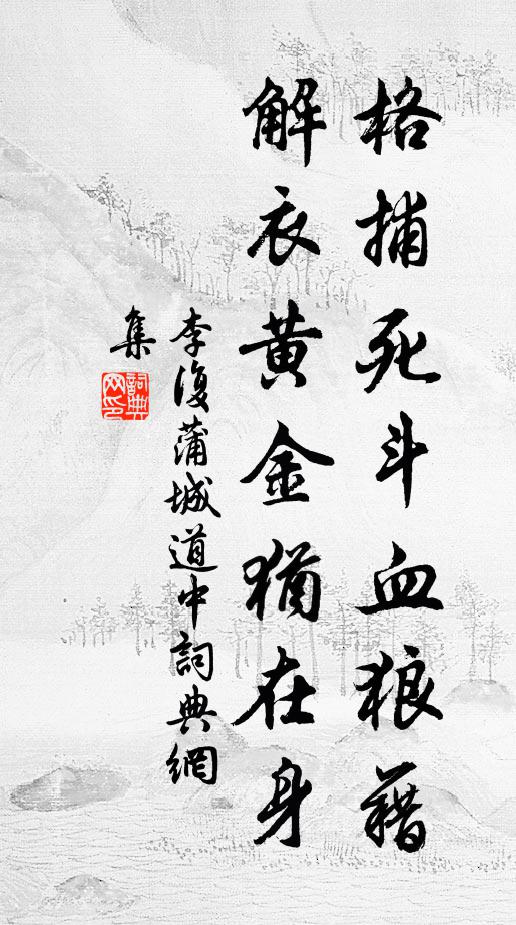 格捕死斗血狼藉
解衣黄金猶在身
李復蒲城道中詞典網
集
詞典
网印